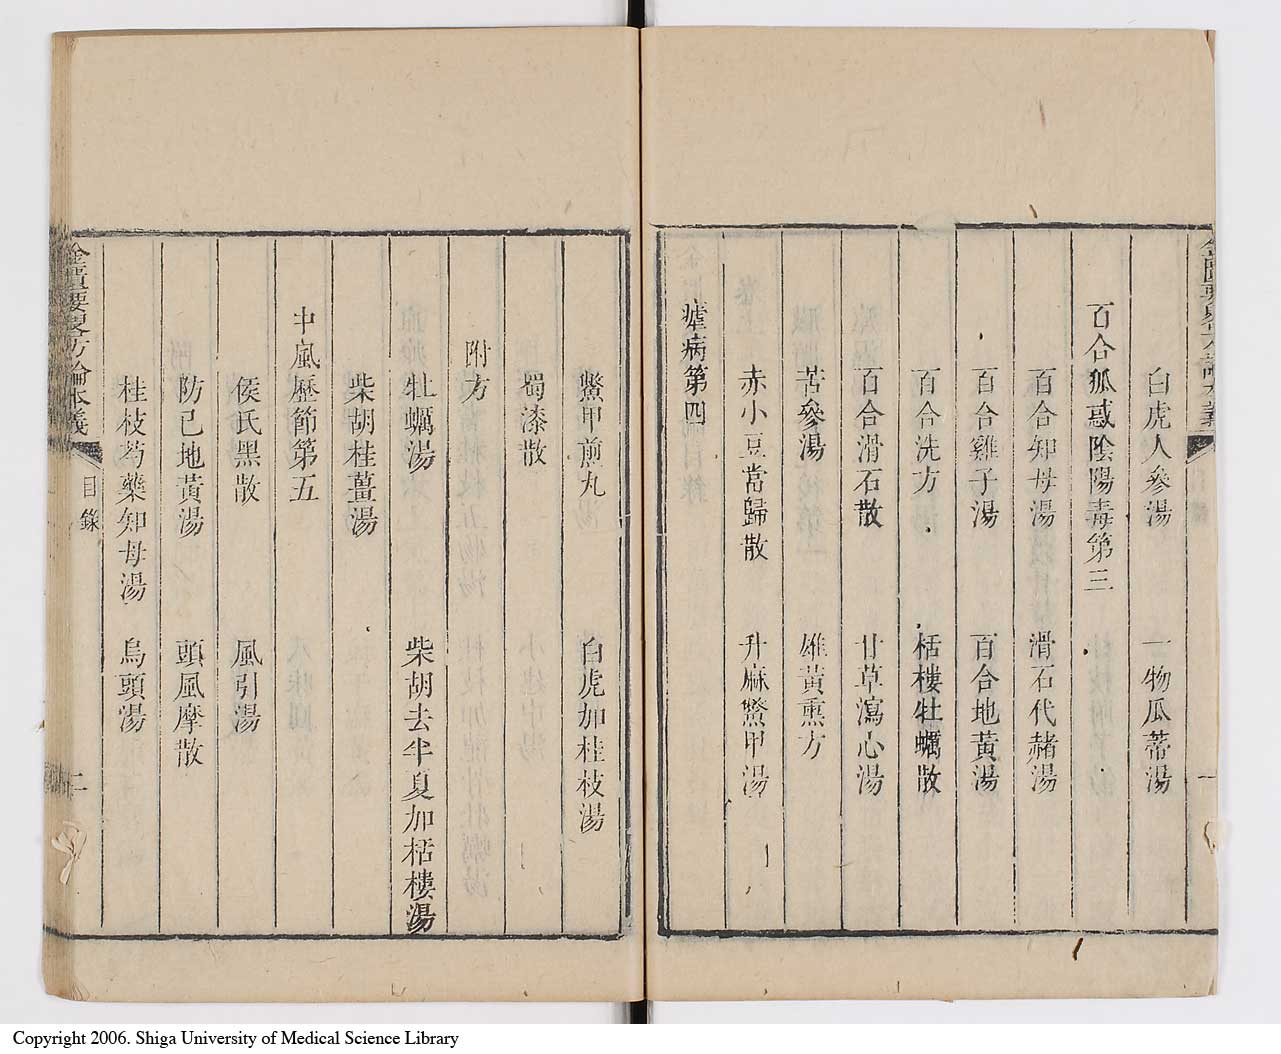 白虎人參湯　一物瓜蒂湯
百合狐惑陰陽毒第三
百合知母湯　滑石代赭湯
百合雞子湯　百合地黃湯
百合洗方　栝樓牡蠣散
百合滑石散　甘草瀉心湯
苦參湯　雄黃熏方
赤小豆當歸散　升麻鱉甲湯
瘧病第四
鱉甲煎丸　白虎加桂枝湯
蜀漆散
附方
牡蠣湯　柴胡去半夏加栝樓湯
柴胡桂薑湯
中風歷節第五
侯氏黑散　風引湯
防己地黃湯　頭風摩散
桂枝芍藥知母湯　烏頭湯
金匱要畧方論本義　目錄　二
Copyright 2006. Shiga University of Medical Science Library